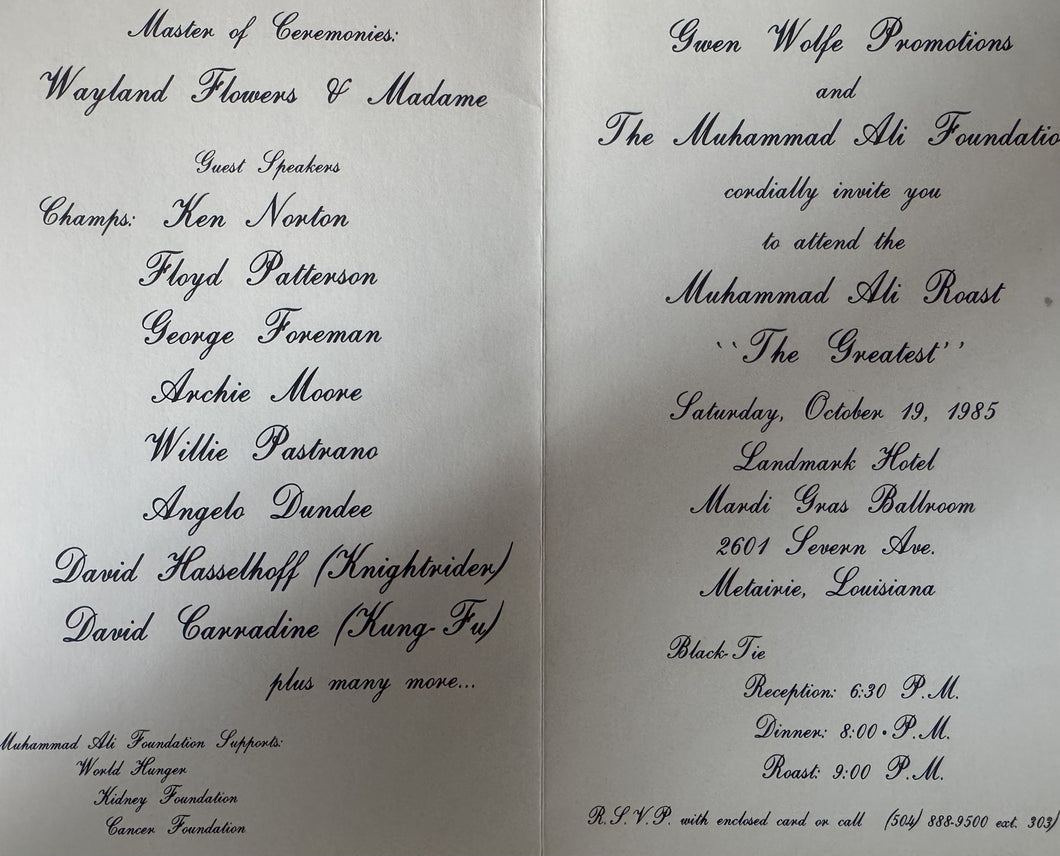 Master of Ceremonies:
Wayland Flowers & Madame
Guest Speakers
Champs: Ken Norton
Floyd Patterson
George Foreman
Archie Moore
Willie Pastrano
Angelo Dundee
David Hasselhoff (Knightrider)
David Carradine (Kung-Fu)
plus many more...
Muhammad Ali Foundation Supports:
World Hunger
Kidney Foundation
Cancer Foundation
Gwen Wolfe Promotions
and
The Muhammad Ali Foundatio
cordially invite you
to attend the
Muhammad Ali Roast
``The Greatest''
Saturday, October 19, 1985
Landmark Hotel
Mardi Gras Ballroom
2601 Severn Ave.
Metairie, Louisiana
Black-Tie
Reception: 6:30 P.M.
Dinner: 8:00 • P.M.
Roast: 9:00 P.M.
R.S.V.P. with enclosed card or call (504) 888-9500 ext. 303)